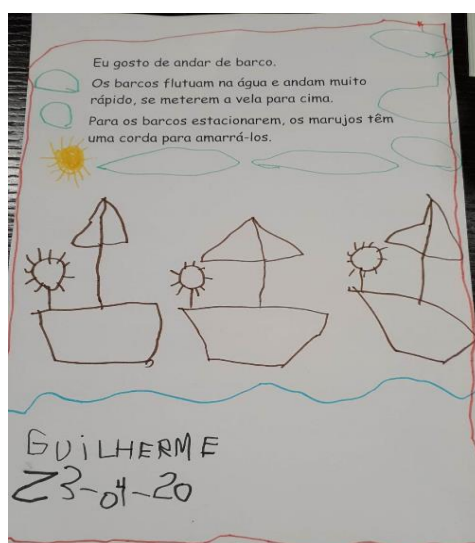 Eu gosto de andar de barco.
Os barcos flutuam na água e andam muito
rápido, se meterem a vela para cima.
Para os barcos estacionarem, os marujos têm
uma corda para amarrá-los.
GUiLHERME
23-04-20